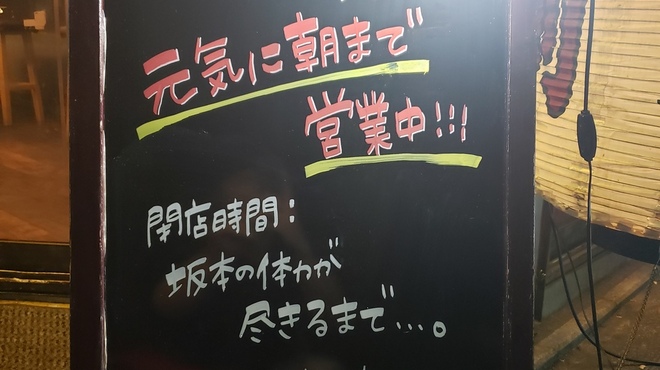 元気に朝まで
営業中!!!
閉店時間:
坂本の体力が
尽きるまで...。